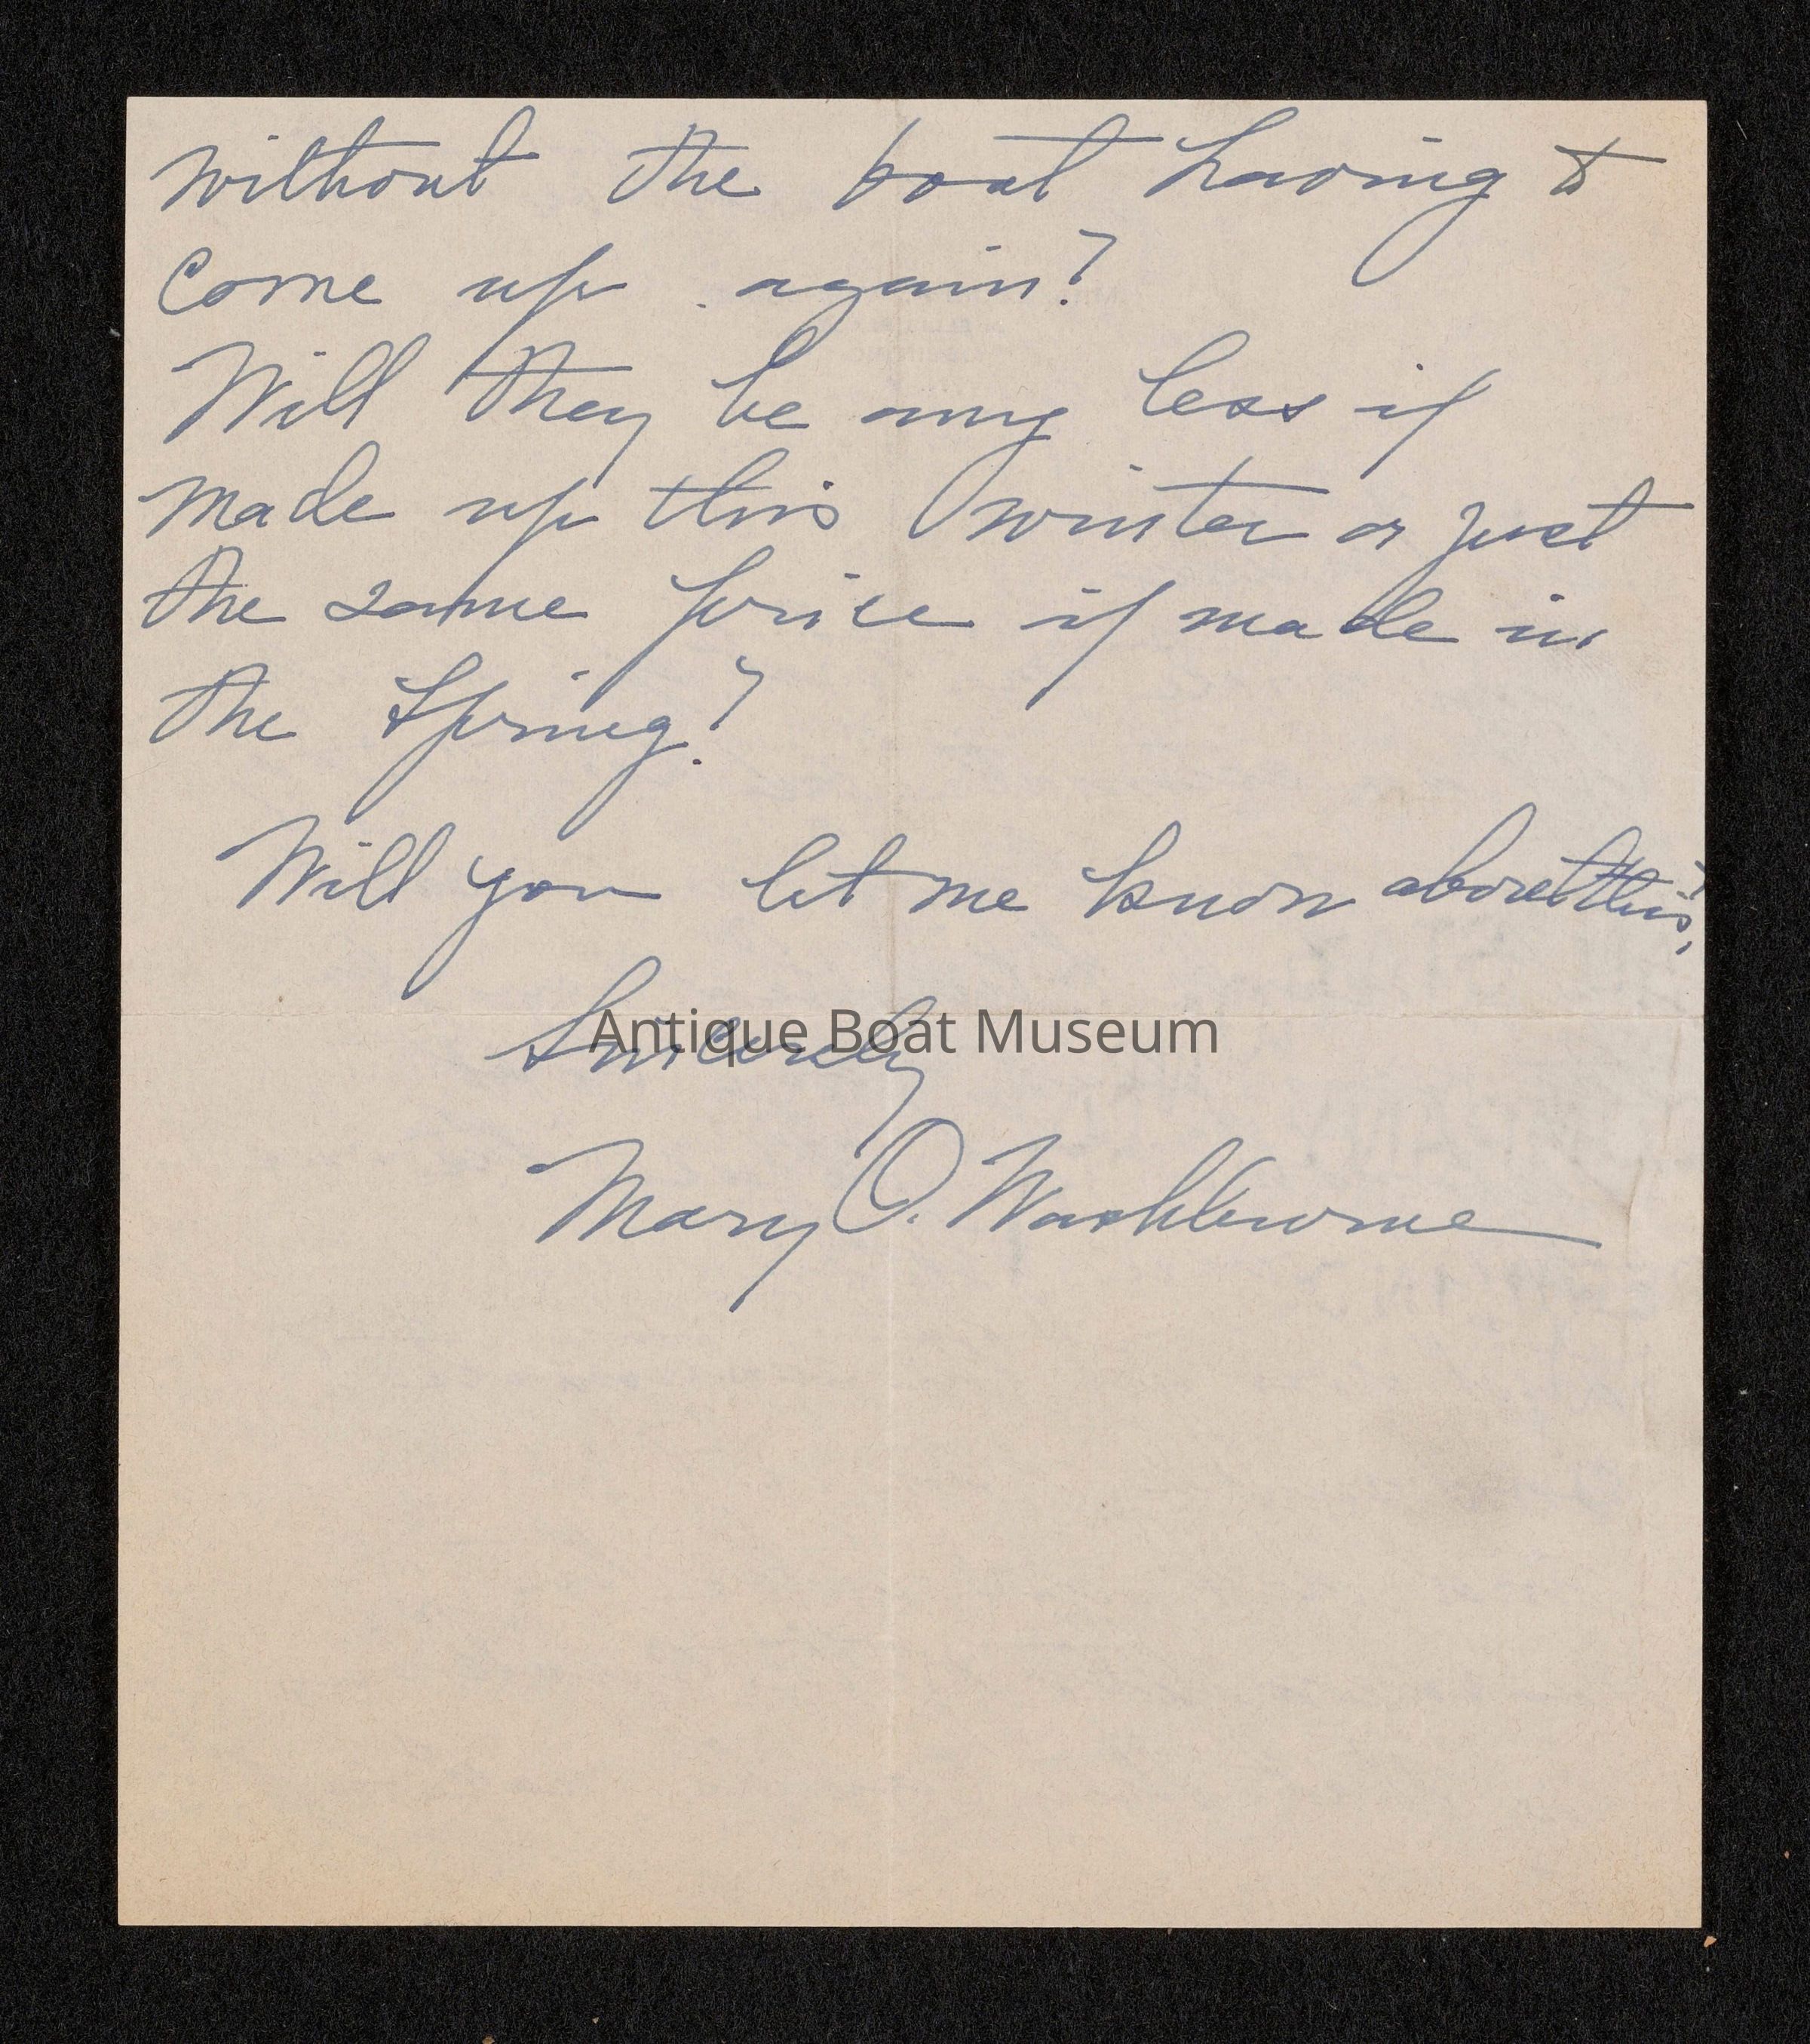 without the boat having to
Come up again?
Will they be any less if
made up this winter or just
the same price if made in
the Spring?
Will you let me know about this?
Sincerely
Antique Boat Museum
Mary O. Washburne